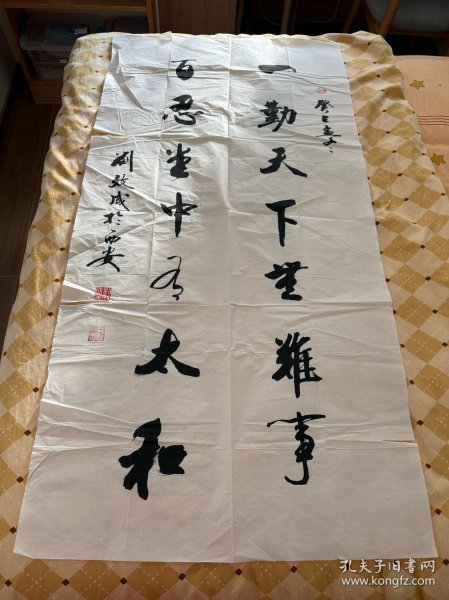 癸巳冬
一勤天下無難事
百忍堂中有太和
劉成於西安
孔夫子旧书网
www.kongfz.com